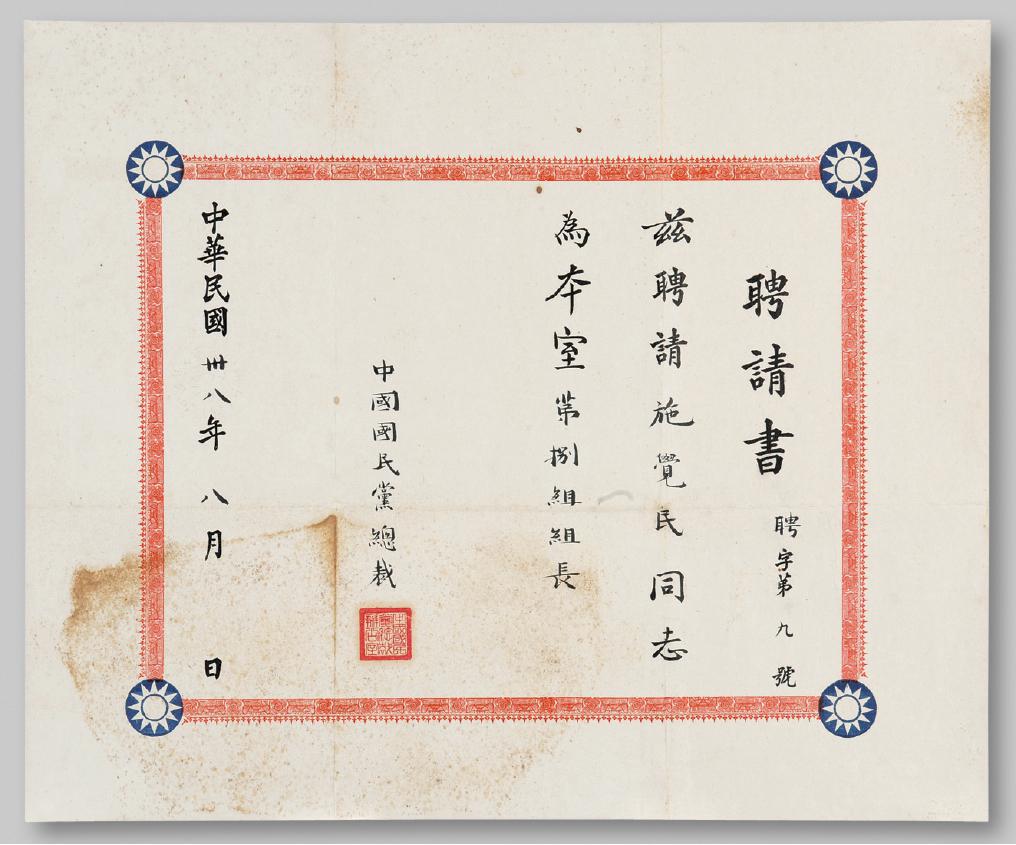 聘請書
聘字第九號
茲聘請施覺民同志
為本室第捌組組長
中國國民黨總裁
中華民國卅八年 八月 日